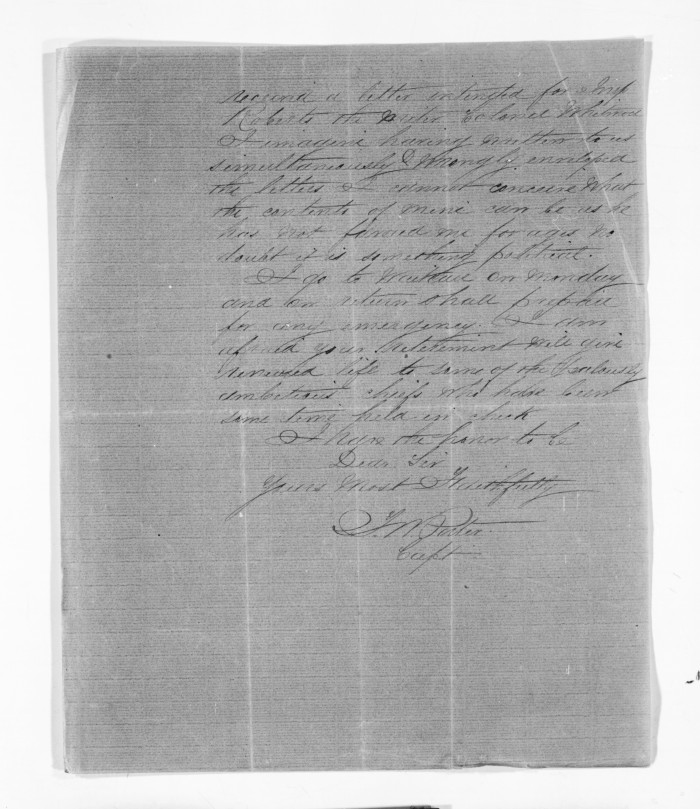 received a letter intended for
Roberts the writer Colonel Whitmore
I imagine having written to us
simultaneously & wrongly enveloped
the letters I cannot conceive what
the contents of mine can be as he
has not favored me for ages no
doubt it is something political.
I go to on Monday
and on return shall prepare
for any emergency. I am
afraid your retirement will give
renewed life to some of the Jealously
ambitious chiefs who have been
some time held in check
I have the honor to be
Dear Sir
Yours Most Faithfully
Porter
Capt